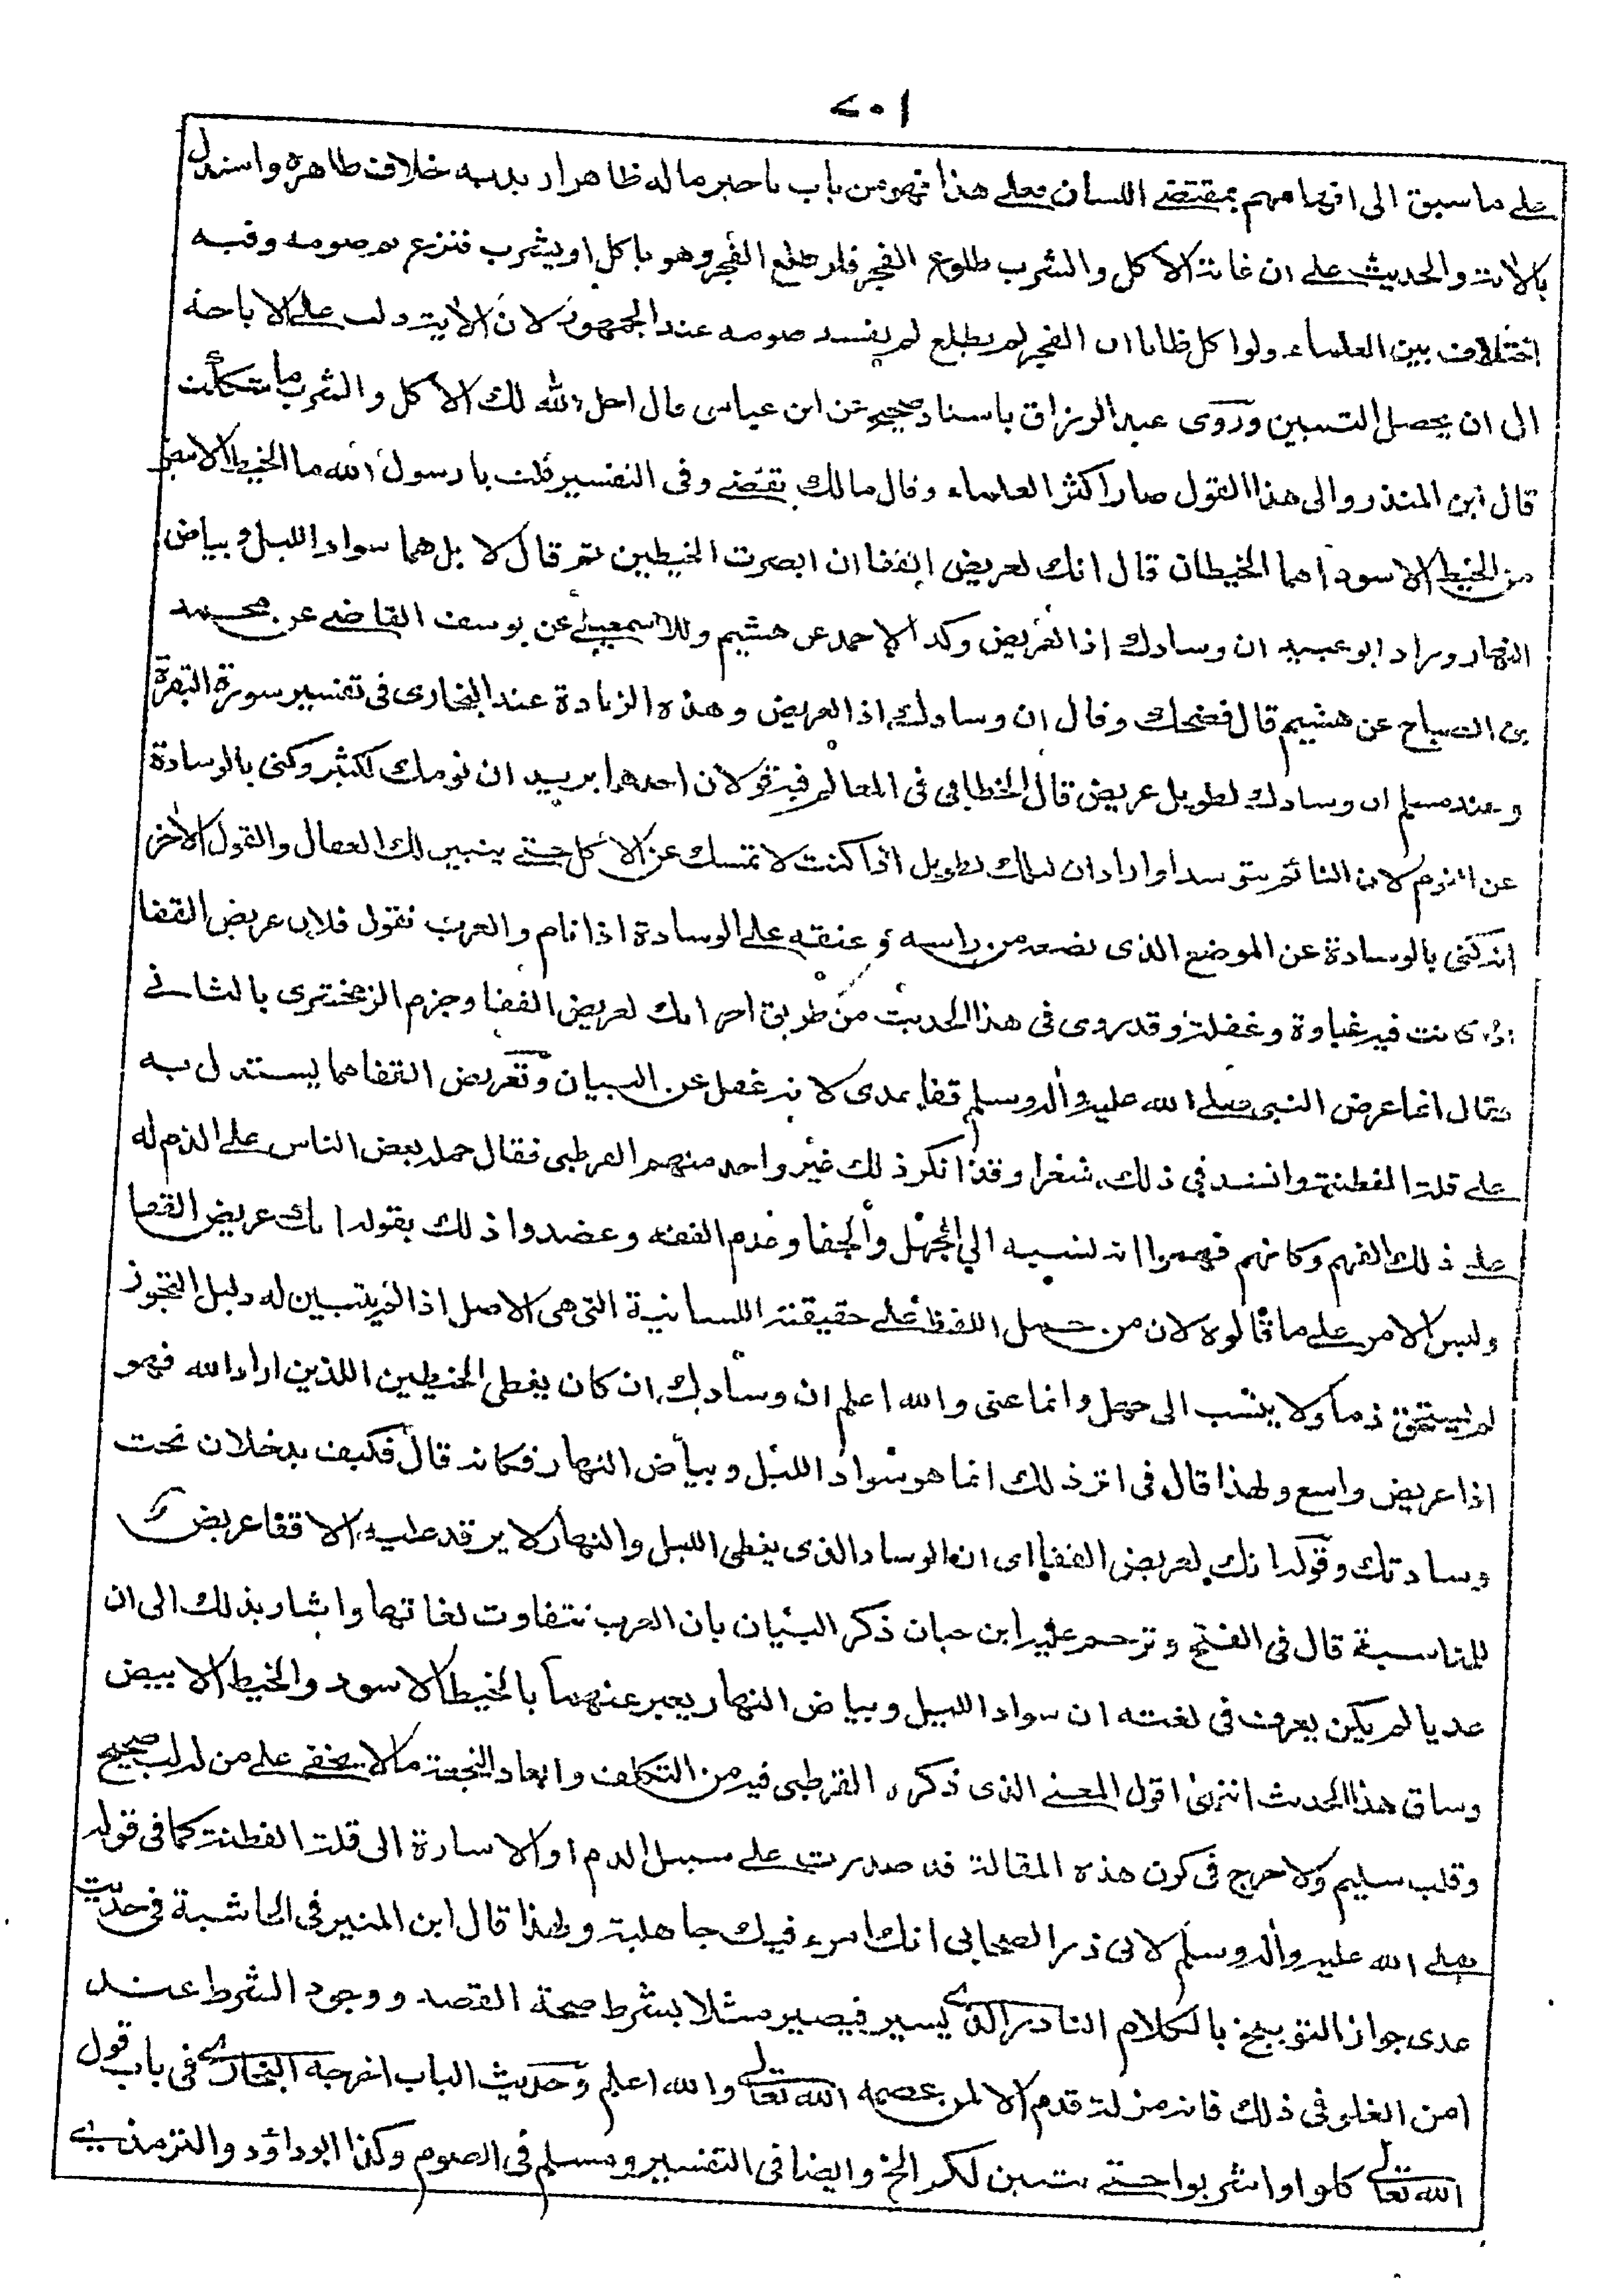 ٢٠١
على ما سبق الى افهامهم بمقتضى اللسان فعلى هذا فهو من باب ما له ظاهر اريد به خلاف ظاهره واستدل
بالآية والحديث على ان غاية الاكل والشرب طلوع الفجر فلو طلع الفجر وهو ياكل او يشرب فنزع تم صومه وفيه
اختلاف بين العلماء ولو اكل ظانا ان الفجر لم يطلع لم يفسد صومه عند الجمهور لان الآية دلت على الاباحة
الى ان يحصل التبيين وروى عبد الرزاق باسناد صحيح عن ابن عباس قال احل الله لك الاكل والشرب ما شككت
قال ابن المنذر والى هذا القول صار اكثر العلماء وقال مالك يقضى وفى التفسير قلت يا رسول الله ما الخيط الابيض
من الخيط الاسود اهما الخيطان قال انك لعريض القفا ان ابصرت الخيطين ثم قال لا بل هما سواد الليل وبياض
النهار وزاد ابو عبيد ان وسادك اذا لعريض وكذا لاحمد عن هشيم وللاسمعيلى عن يوسف القاضى عن محمد
بن الصباح عن هشيم قال فضحك وقال ان وسادك اذا لعريض وهذه الزيادة عند البخارى فى تفسير سورة البقرة
وعند مسلم ان وسادك لطويل عريض قال الخطابى فى المعالم فيه قولان احدهما يريد ان نومك لكثير وكنى بالوسادة
عن النوم لان النائم يتوسد او اراد ان ليلك لطويل اذا كنت لا تمسك عن الاكل حتى يتبين لك العقال والقول الآخر
انه كنى بالوسادة عن الموضع الذى يضعه من راسه وعنقه على الوسادة اذا نام والعرب تقول فلان عريض القفا
اذا كانت فيه غباوة وغفلة وقد روى فى هذا الحديث من طريق اخر انك لعريض القفا وجزم الزمخشرى بالثانى
فقال انما عرض النبى صلى الله عليه وآله وسلم قفا عدى لانه غفل عن البيان وتعريض القفا مما يستدل به
على قلة الفطنة وانشد فى ذلك شعرا وقد انكر ذلك غير واحد منهم القرطبى فقال حمله بعض الناس على الذم له
على ذلك الفهم وكانهم فهموا انه نسبه الى الجهل والجفا وعدم الفقه وعضدوا ذلك بقوله انك عريض القفا
وليس الامر على ما قالوه لان من حمل اللفظ على حقيقته اللسانية التى هى الاصل اذا لم يتبين له دليل التجوز
لم يستحق ذما ولا ينسب الى جهل وانما عنى والله اعلم ان وسادك ان كان يغطى الخيطين اللذين اراد الله فهو
اذا عريض واسع ولهذا قال فى اثر ذلك انما هو سواد الليل وبياض النهار فكانه قال فكيف يدخلان تحت
وسادتك وقوله انك لعريض القفا اى ان الوساد الذى يغطى الليل والنهار لا يرقد عليه الا قفا عريض
للمناسبة قال فى الفتح وترجم عليه ابن حبان ذكر البيان بان العرب تتفاوت لغاتها واشار بذلك الى ان
عديا لم يكن يعرف فى لغته ان سواد الليل وبياض النهار يعبر عنهما بالخيط الاسود والخيط الابيض
وساق هذا الحديث انتهى اقول المعنى الذى ذكره القرطبى فيه من التكلف وابعاد النجعة ما لا يخفى على من له لب صحيح
وقلب سليم ولا حرج فى كون هذه المقالة قد صدرت على سبيل الذم او الاشارة الى قلة الفطنة كما فى قوله
صلى الله عليه وآله وسلم لابى ذر الصحابى انك امرء فيك جاهلية ولهذا قال ابن المنير فى الحاشية فى حديث
عدى جواز التوبيخ بالكلام النادر الذى يسير فيصير مثلا بشرط صحة القصد ووجود الشرط عند
امن الغلو فى ذلك فانه مزلة قدم الا لمن عصمه الله تعالى والله اعلم وحديث الباب اخرجه البخارى فى باب قول
الله تعالى كلوا واشربوا حتى يتبين لكم الخ وايضا فى التفسير ومسلم فى الصوم وكذا ابو داؤد والترمذى